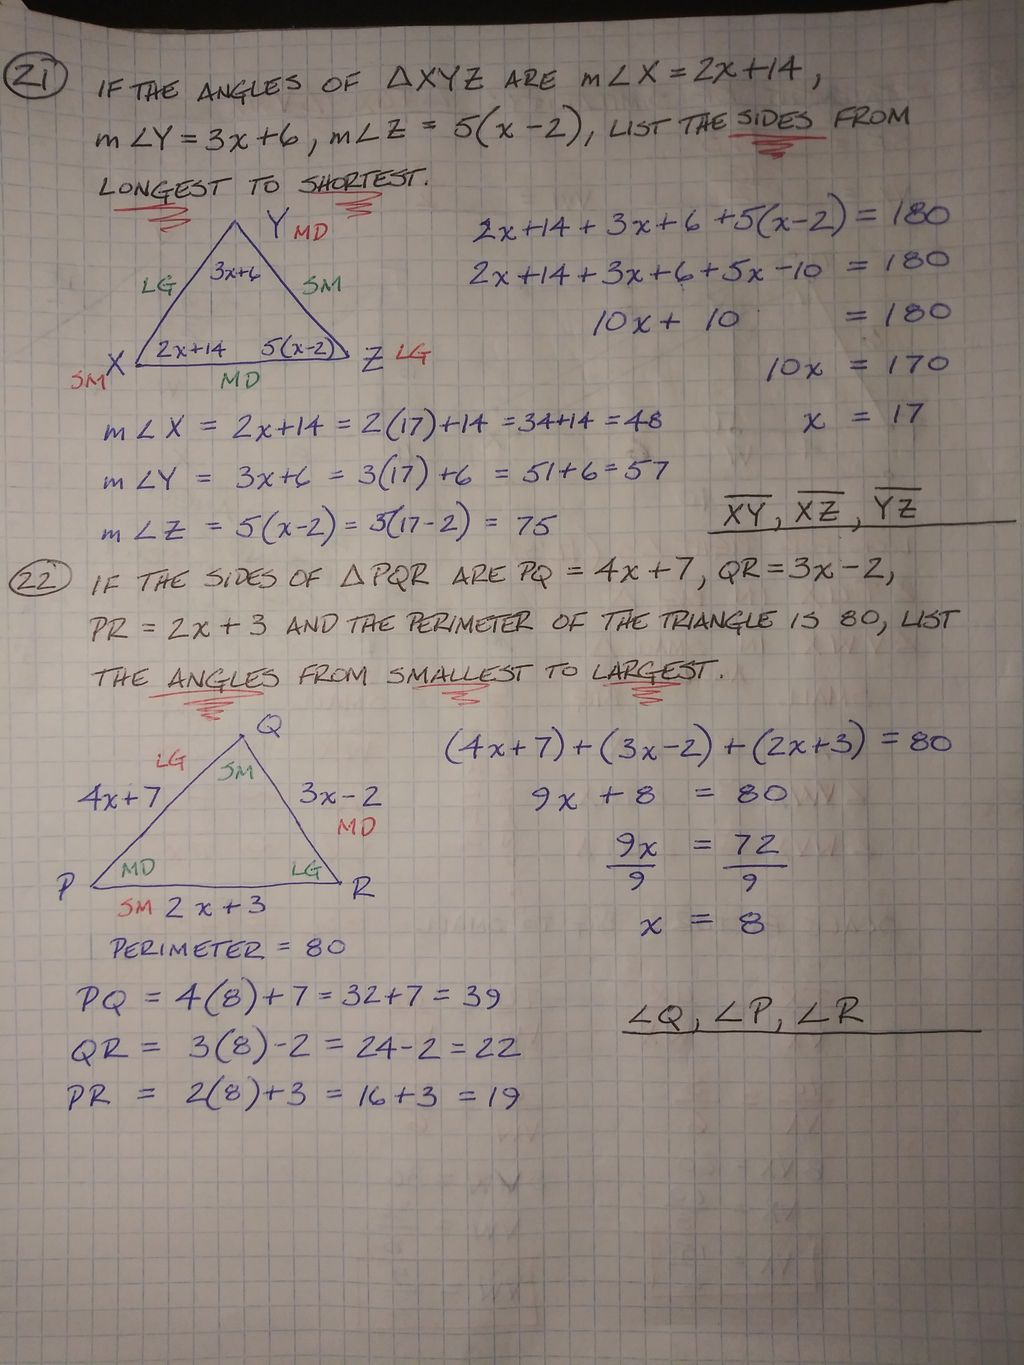 21) IF THE ANGLES OF △XYZ ARE m∠X = 2x+14,
m∠Y = 3x+6, m∠Z = 5(x-2), LIST THE SIDES FROM
LONGEST TO SHORTEST.
Y MD
LG 3x+6 SM
X 2x+14 5(x-2) Z LG
SM MD
2x+14 + 3x+6 +5(x-2) = 180
2x+14+3x+6+5x-10 = 180
10x + 10 = 180
10x = 170
x = 17
m∠X = 2x+14 = 2(17)+14 = 34+14 = 48
m∠Y = 3x+6 = 3(17)+6 = 51+6 = 57
m∠Z = 5(x-2) = 5(17-2) = 75
X̅Y̅, X̅Z̅, Y̅Z̅
22) IF THE SIDES OF △PQR ARE PQ = 4x+7, QR = 3x-2,
PR = 2x+3 AND THE PERIMETER OF THE TRIANGLE IS 80, LIST
THE ANGLES FROM SMALLEST TO LARGEST.
Q
LG SM
4x+7 3x-2
MD
MD LG
P R
SM 2x+3
PERIMETER = 80
(4x+7)+(3x-2)+(2x+3) = 80
9x + 8 = 80
9x = 72
9 9
x = 8
PQ = 4(8)+7 = 32+7 = 39
QR = 3(8)-2 = 24-2 = 22
PR = 2(8)+3 = 16+3 = 19
∠Q, ∠P, ∠R